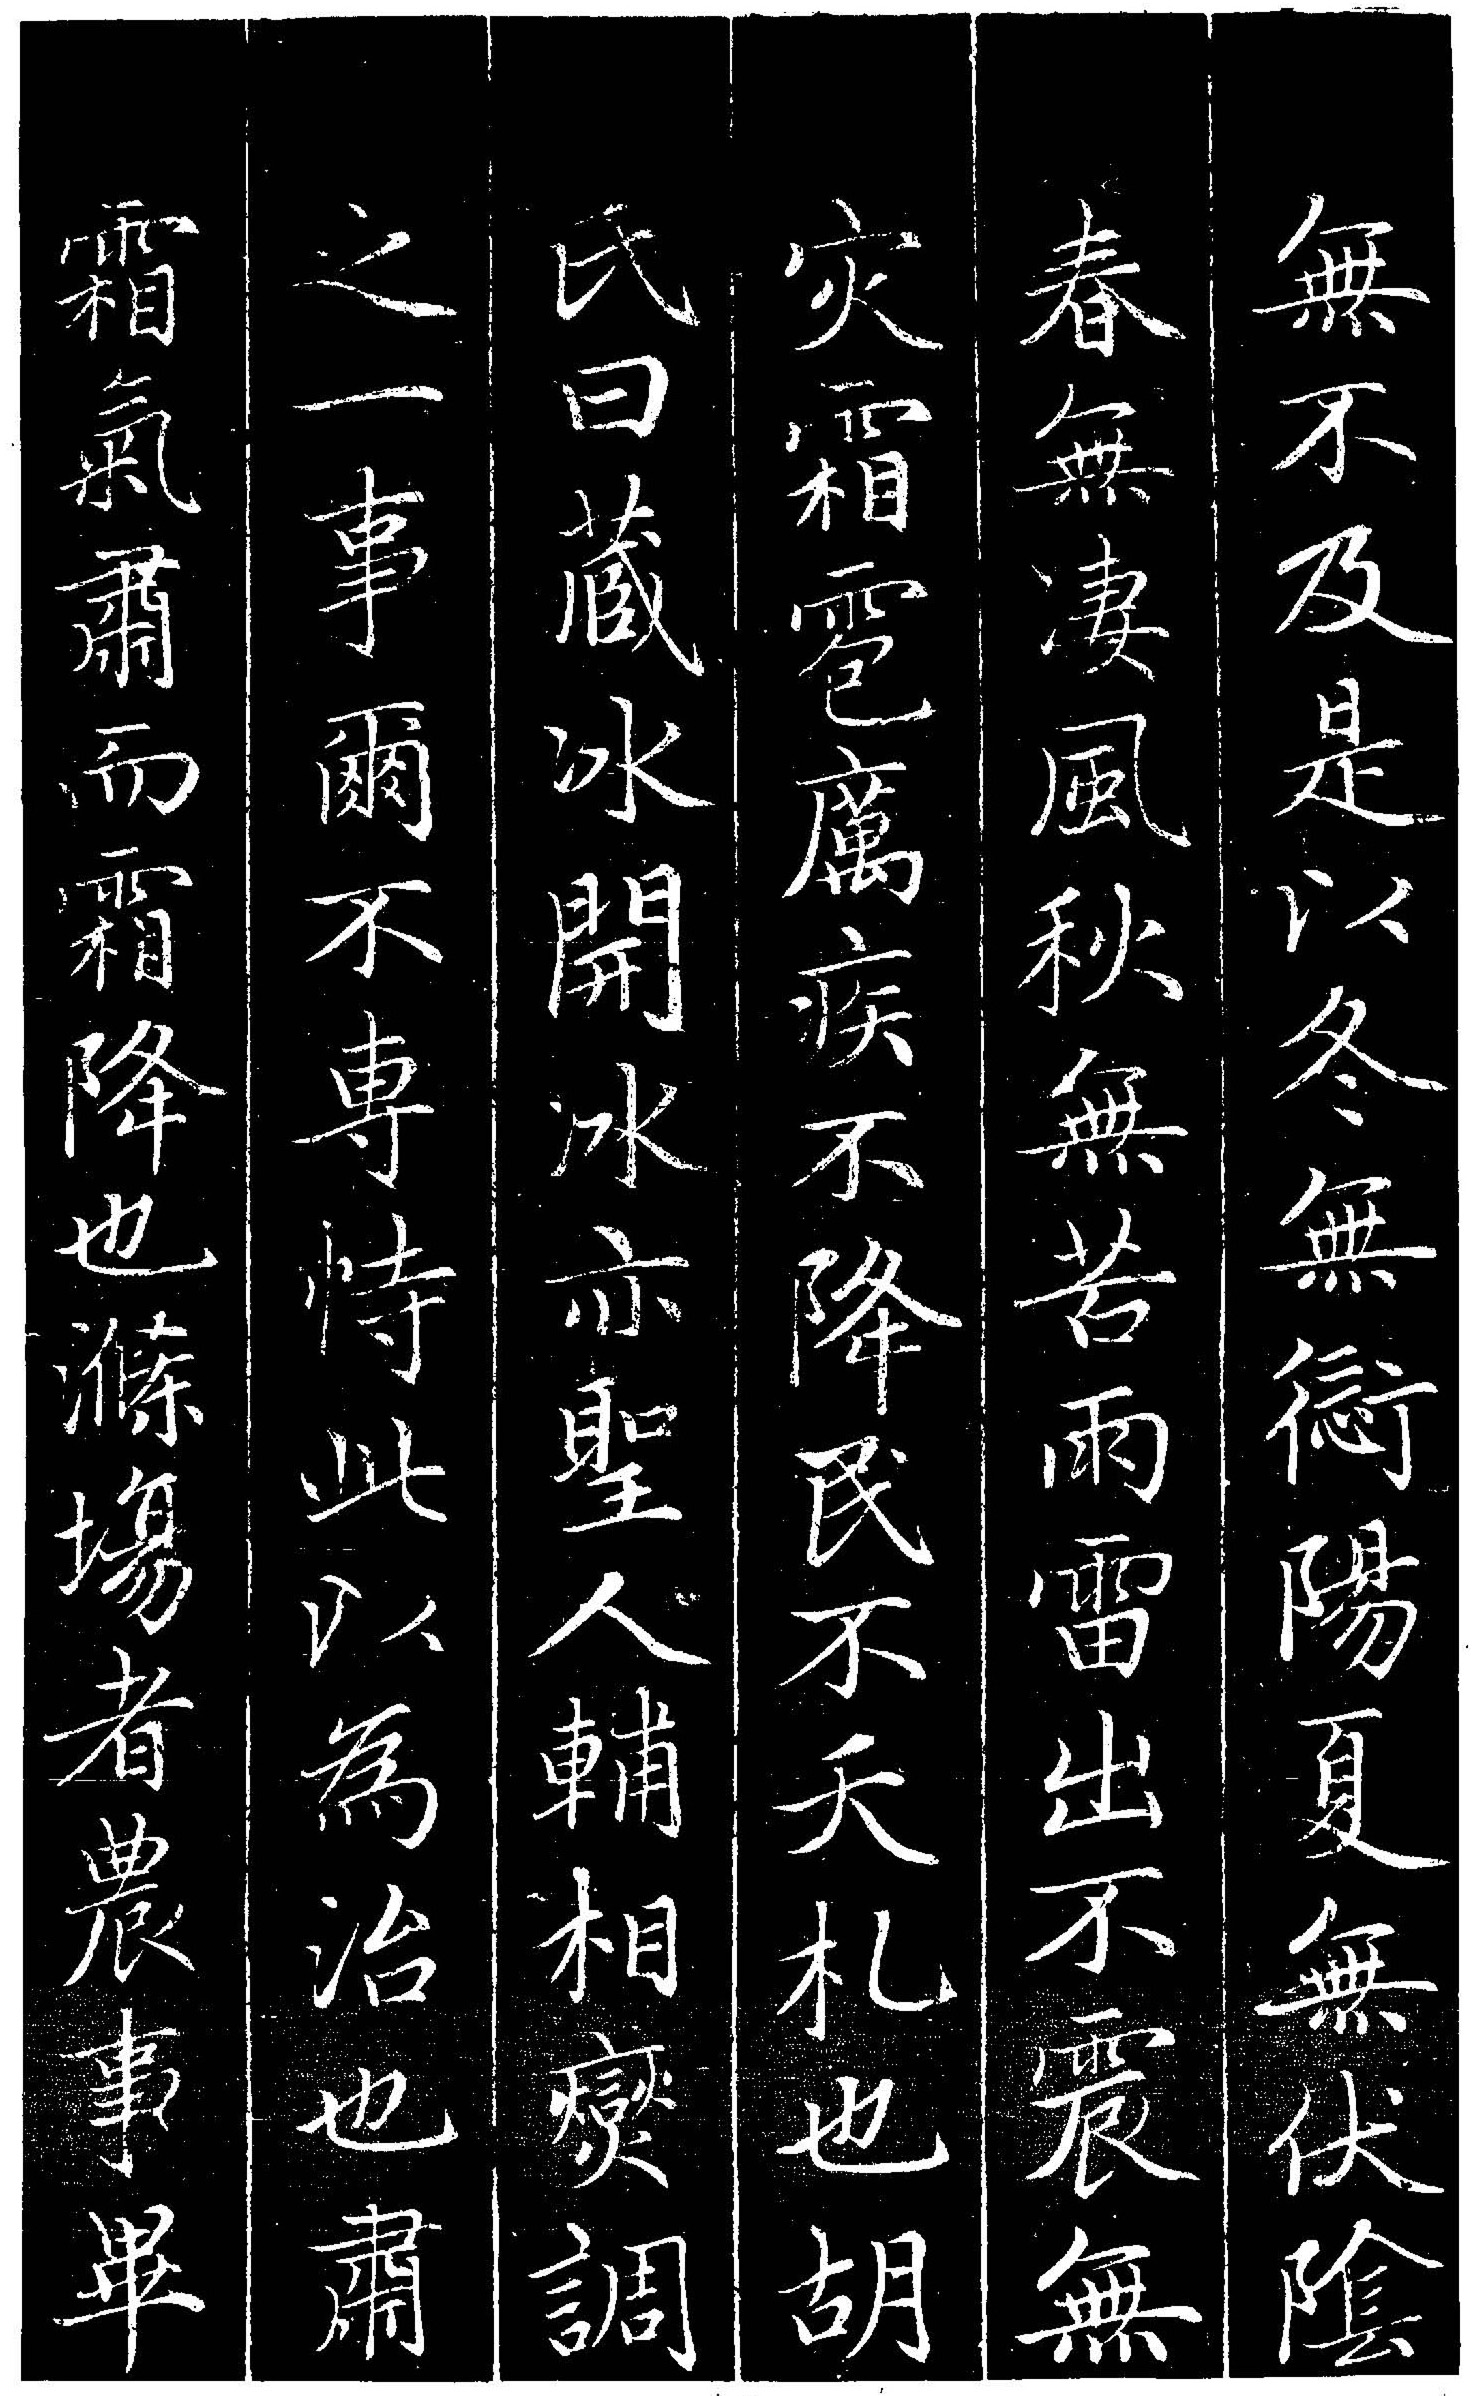 無不及是以冬無愆陽夏無伏陰
春無凄風秋無苦雨雷出不震無
灾霜雹厲疾不降民不夭札也胡
氏曰蔵冰開冰亦聖人輔相燮調
之一事爾不專恃此以為治也肅
霜氣肅而霜降也滌場者農事畢